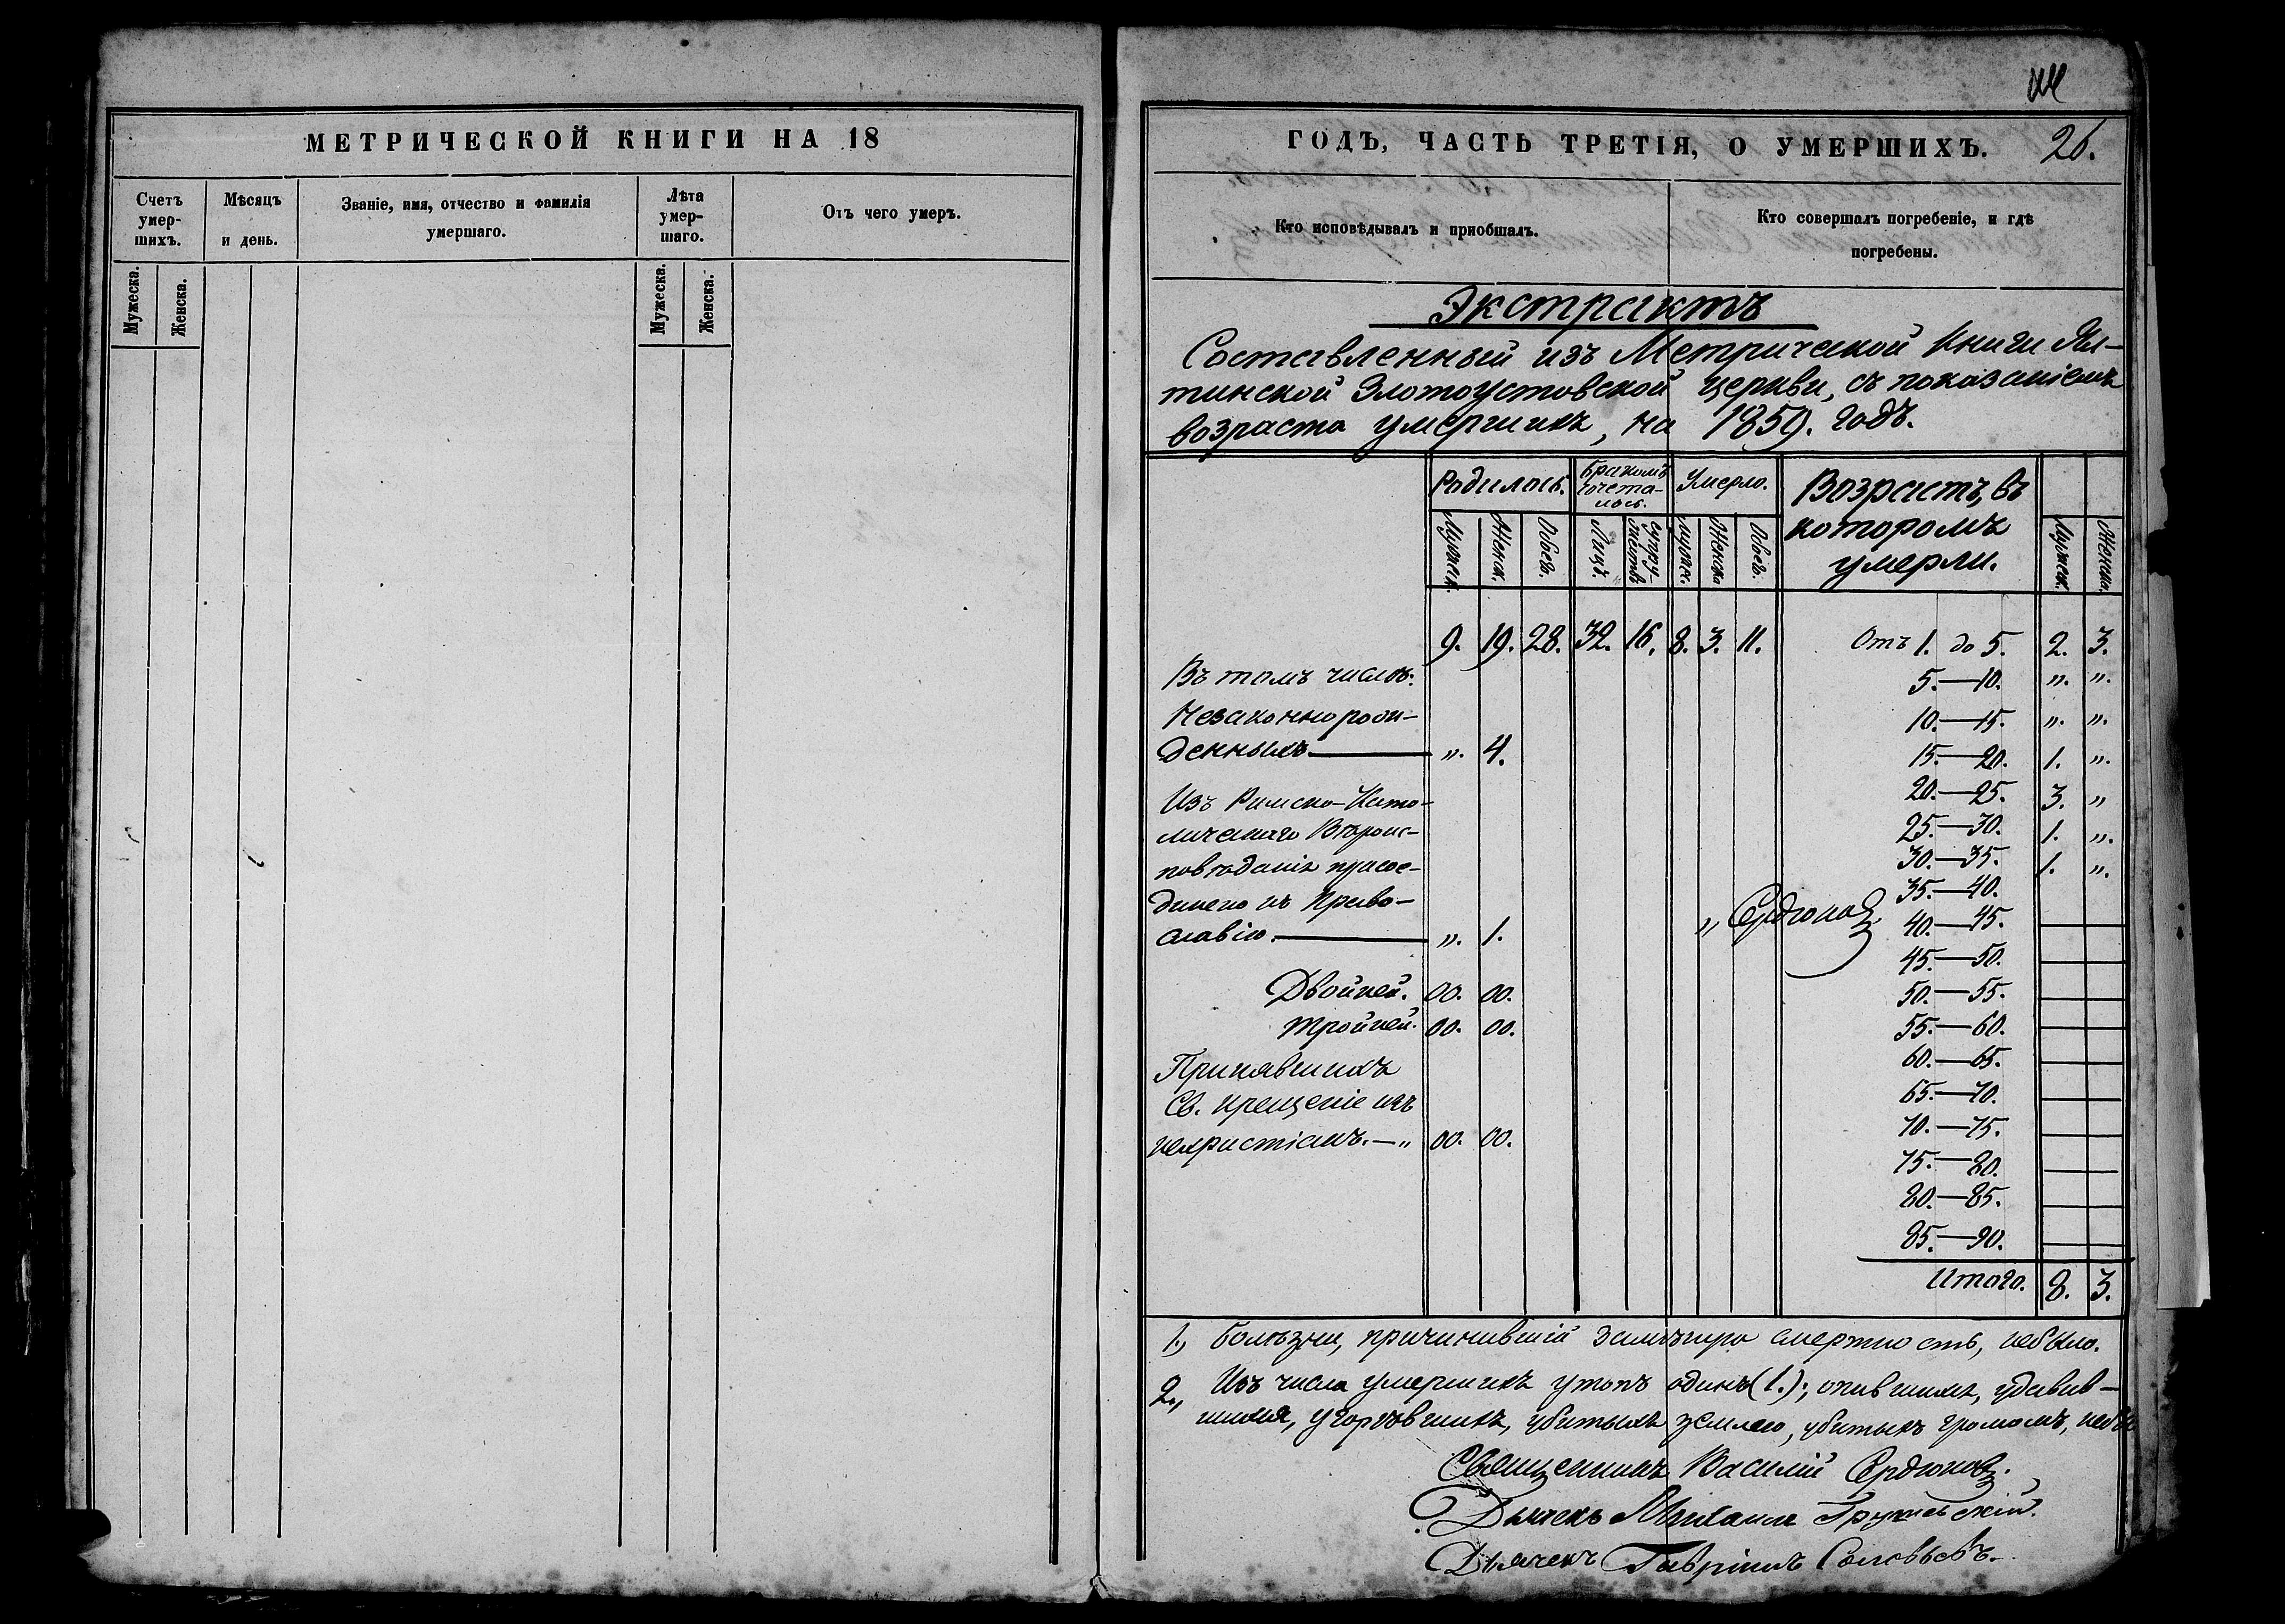 МЕТРИЧЕСКОЙ КНИГИ НА 18
Счетъ умер-шихъ.
Мѣсяцъ и день.
Званіе, имя, отчество и фамилія умершаго.
Лѣта умер-шаго.
Отъ чего умеръ.
Мужеска.
Женска.
Мужеска.
Женска.
ГОДЪ, ЧАСТЬ ТРЕТІЯ, О УМЕРШИХЪ.
26.
Кто исповѣдывалъ и приобщалъ.
Кто совершалъ погребеніе, и гдѣ погребены.
Экстрактъ
Составленный изъ Метрической Книги Ял-
тинской Златоустовской церкви, съ показаніемъ
возраста умершихъ, на 1859. годъ.
Родилось.
Бракомъ сочета-лось.
Умерло.
Возрастъ, въ
которомъ
умерли.
Мужеск.
Женск.
Обоег.
Лицъ.
Супру-жествъ
Мужес.
Женска
Обоег.
Мужеск.
Женска.
9. 19. 28. 32. 16. 8. 3. 11.
Отъ 1. до 5. 2. 3.
Въ томъ числѣ:
5.—10. ". ".
Незаконнорож-
10.—15. ". ".
денныхъ — ". 4.
15.—20. 1. ".
Изъ Римско-Като-
20.—25. 3. "
лическаго Вѣроис-
25.—30. 1. ".
повѣданія присое-
30.—35. 1. ".
динено къ Право-
35.—40.
славію. — ". 1.
" Сердюковъ
40.—45.
45.—50.
Двойней. 00. 00.
50.—55.
Тройней. 00. 00.
55.—60.
Принявшихъ
60.—65.
Св. крещеніе изъ
65.—70.
нехристіанъ. — " 00. 00.
70.—75.
75.—80.
80.—85.
85.—90.
Итого. 8. 3.
1., Болѣзни, причинившій замѣтную смертность, небыло.
2., Изъ числа умершихъ утопъ одинъ (1.); опившихъ, удавив-
шихся, угорѣвшихъ, убитыхъ землею, убитыхъ громомъ,
Священникъ Василій Сердюковъ.
Дьячекъ Михаилъ
Дьячекъ Гавріилъ Соловьевъ.